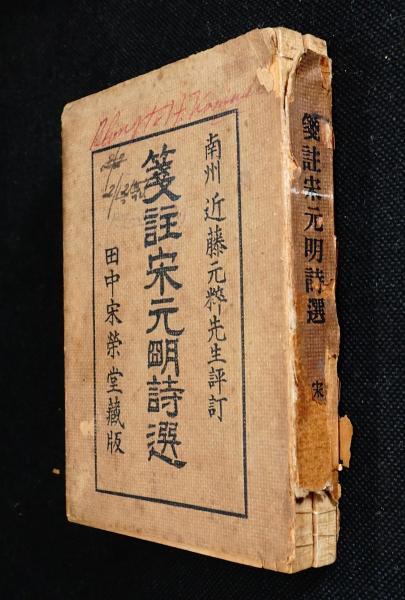 Belong to H.
南州 近藤元粹先生評訂
箋註宋元明詩選
田中宋榮堂藏版
箋註宋元明詩選
宋